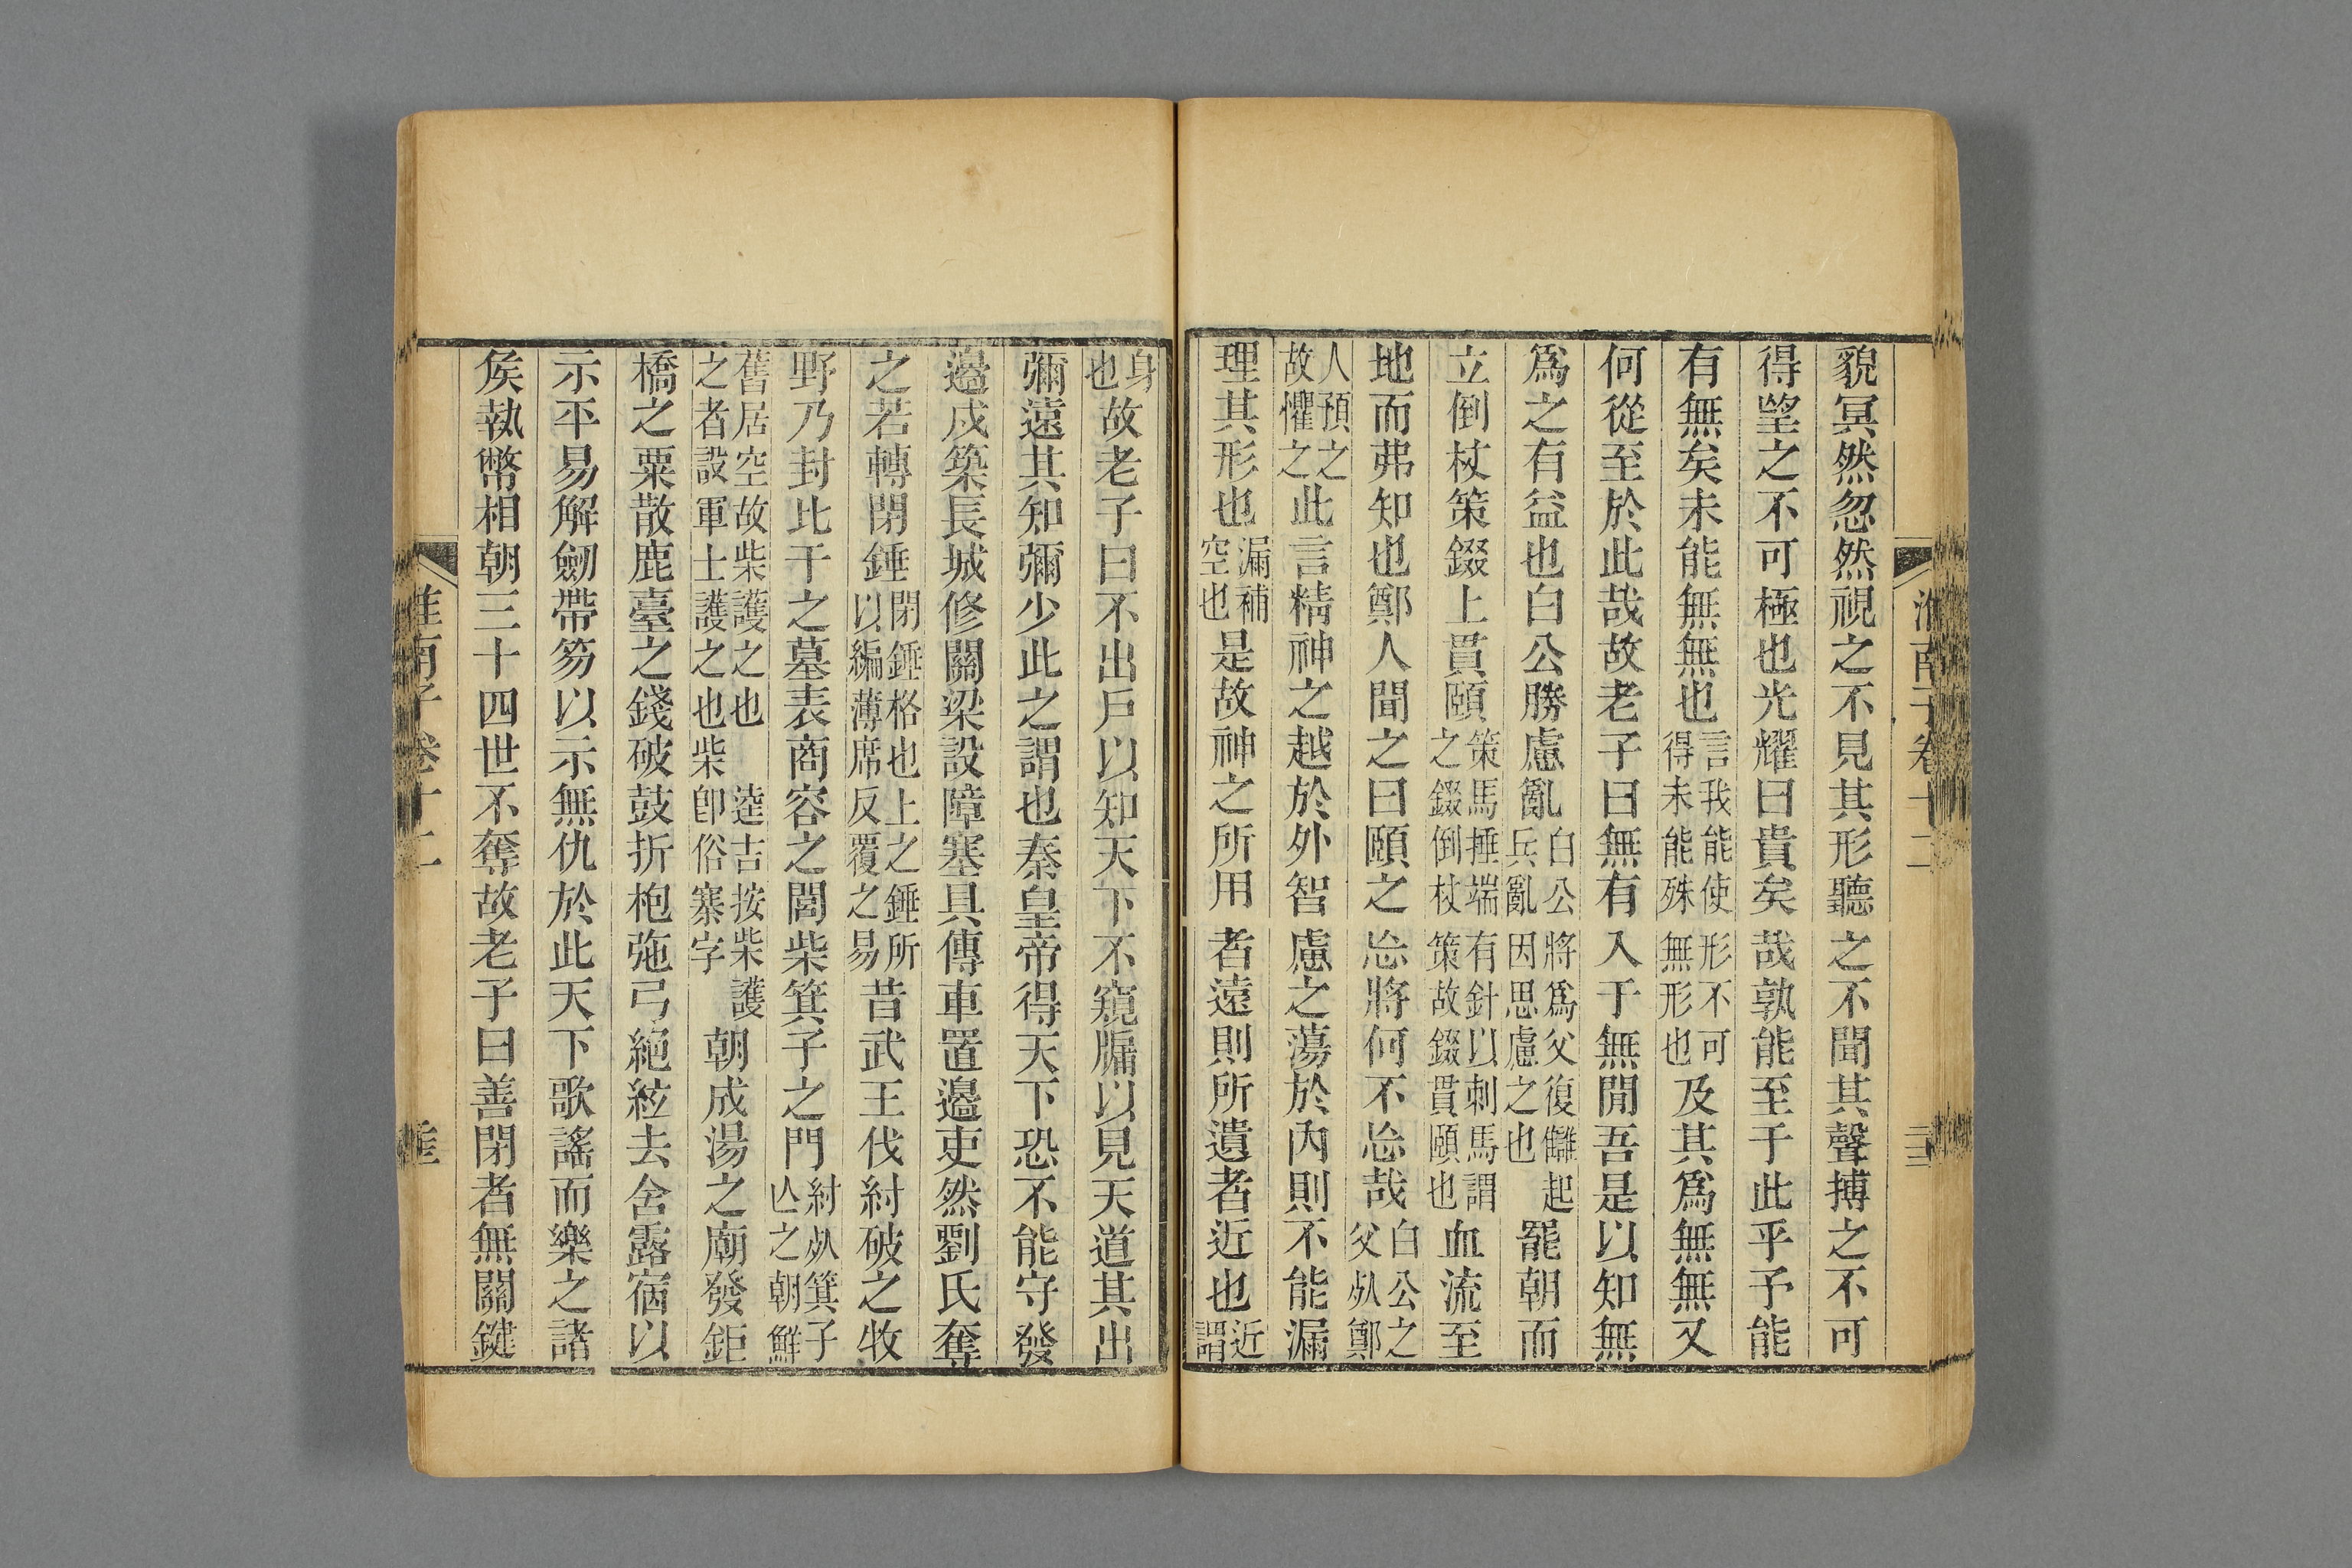 貌冥然忽然視之不見其形聽之不聞其聲搏之不可
得望之不可極也光耀曰貴矣哉孰能至于此乎予能
有無矣未能無無也言我能使形不可得未能殊無形也及其爲無無又
何從至於此哉故老子曰無有入于無閒吾是以知無
爲之有益也白公勝慮亂白公將爲父復讎起兵亂因思慮之也罷朝而
立倒杖策錣上貫頤策馬捶端有針以刺馬謂之錣倒杖策故錣貫頤也血流至
地而弗知也鄭人聞之曰頤之忘將何不忘哉白公之父死鄭
人預之故懼之此言精神之越於外智慮之蕩於內則不能漏
理其形也漏補空也是故神之所用者遠則所遺者近也近謂
淮南子卷十二
身也故老子曰不出戶以知天下不窺牖以見天道其出
彌遠其知彌少此之謂也秦皇帝得天下恐不能守發
邊戍築長城修關梁設障塞具傳車置邊吏然劉氏奪
之若轉閉錘閉錘格也上之錘所以編薄席反覆之易昔武王伐紂破之牧
野乃封比干之墓表商容之閭柴箕子之門紂死箕子亾之朝鮮
舊居空故柴護之也逵吉按柴護之者設軍士護之也柴卽俗寨字護朝成湯之廟發鉅
橋之粟散鹿臺之錢破鼓折枹弛弓絕絃去舍露宿以
示平易解劒帶笏以示無仇於此天下歌謠而樂之諸
矦執幣相朝三十四世不奪故老子曰善閉者無關鍵
淮南子卷十二